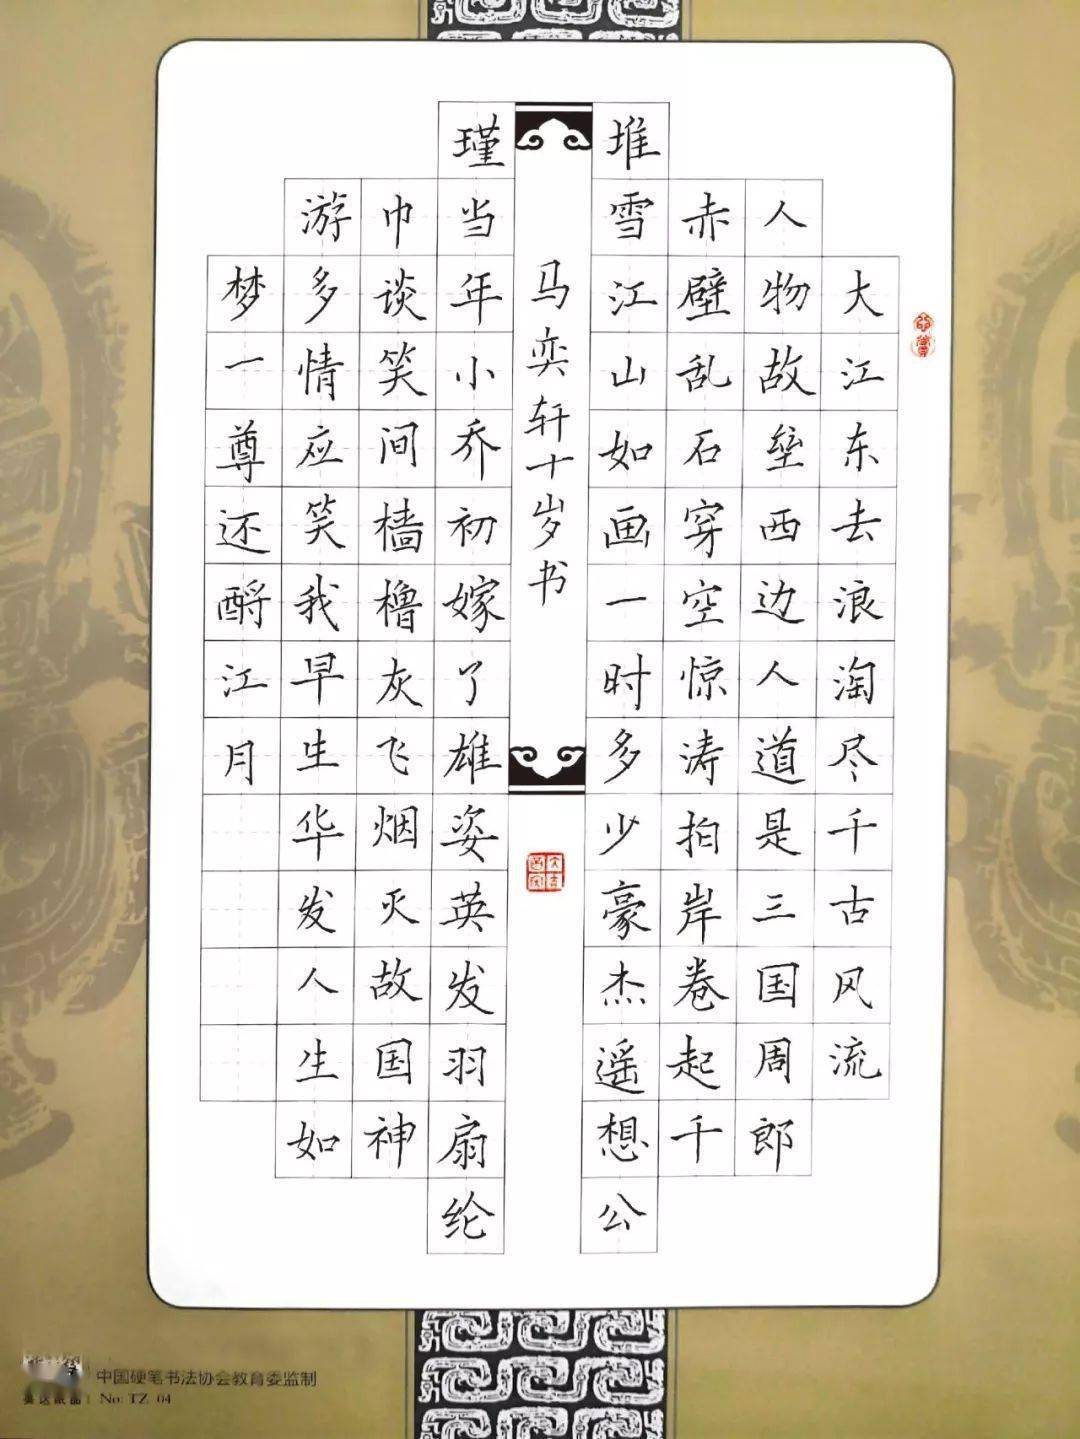 大江东去浪淘尽千古风流
人物故垒西边人道是三国周郎
赤壁乱石穿空惊涛拍岸卷起千
堆雪江山如画一时多少豪杰遥想公
马奕轩十岁书
瑾当年小乔初嫁了雄姿英发羽扇纶
巾谈笑间樯橹灰飞烟灭故国神
游多情应笑我早生华发人生如
梦一尊还酹江月
中国硬笔书法协会教育委监制
No: TZ 04